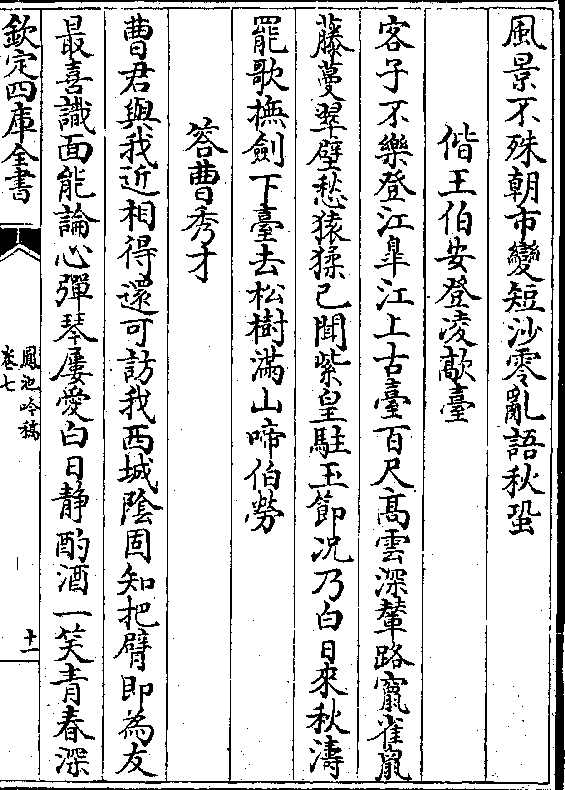 風景不殊朝市變短沙零亂語秋蛩
偕王伯安登凌歊臺
客子不樂登江臯江上古臺百尺髙雲深輦路竄雀鼠
藤蔓翠壁愁猿猱已聞紫皇駐玉節况乃白日來秋濤
罷歌撫劍下臺去松樹滿山啼伯勞
答曹秀才
曹君與我近相得還可訪我西城陰固知把臂即為友
最喜識面能論心彈琴屢愛白日静酌酒一笑青春深
欽定四庫全書
鳳池吟稿
卷七
十一